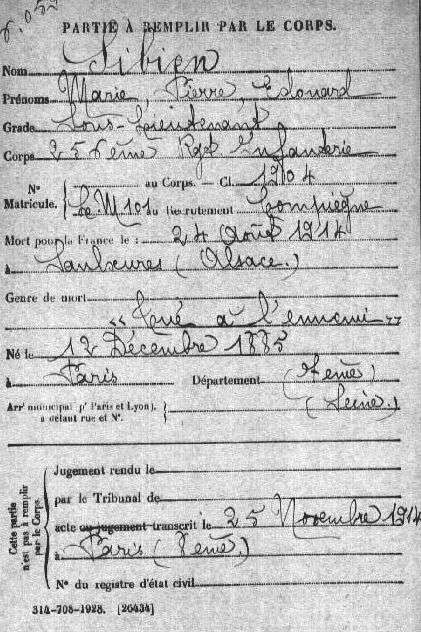 PARTIE À REMPLIR PAR LE CORPS.
Nom Sibien
Prénoms Marie, Pierre, Edouard
Grade Sous-Lieutenant
Corps 25 ème Rgt Infanterie
N° Matricule. { au Corps. — Cl. 1904
Le M 101 au Recrutement Compiègne
Mort pour la France le : 24 Août 1914
à Saulxures (Alsace.)
Genre de mort
"Tué à l'ennemi"
Né le 12 Décembre 1885
à Paris Département (Seine.)
Arr' municipal (p' Paris et Lyon), à défaut rue et N°. }
Cette partie n'est pas à remplir par le Corps.
Jugement rendu le
par le Tribunal de
acte ou jugement transcrit le 25 Novembre 1914
à Paris
N° du registre d'état civil
314-708-1928. [26434]